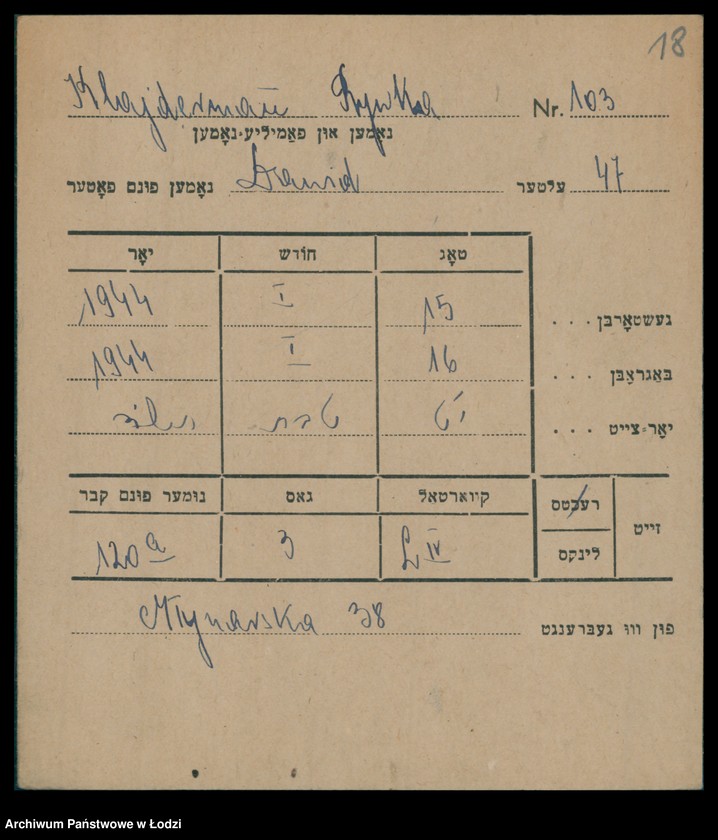 18
Klajderman Rywka Nr. 103
נאָמען און פאַמיליע-נאָמען
נאָמען פונם פאָטער Dawid עלטער 47
טאָג חודש יאָר
געשטאָרבן . . . 15 I 1944
באַגראָבן . . . 16 I 1944
יאָר-צייט . . . י"ט טבת תש"ד
זייט רעכטס קוואַרטאַל גאס נומער פונם קבר
לינקס L IV 3 120 a
פון וואו געברענגט Młynarska 38
Archiwum Państwowe w Łodzi